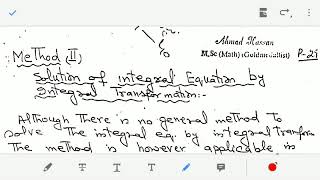 Ahmad Hassan
M.Sc (Math) (Goldmedallist)
P-21
Method (II)
Solution of integral Equation by
Integral Transformation:-
Although There is no general method to
solve The integral eq. by integral transform
The method is however applicable in